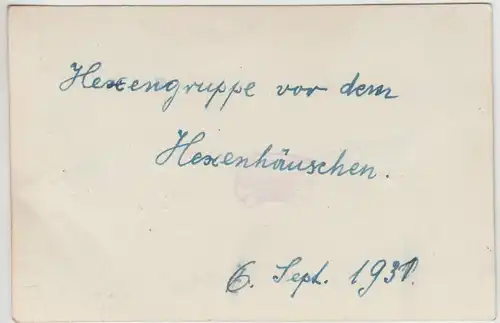 Hexengruppe vor dem
Hexenhäuschen.
6. Sept. 1931.